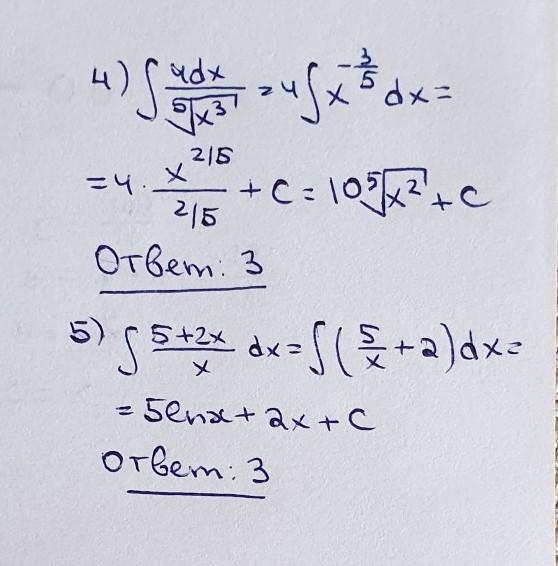 4) ∫ 4dx / ⁵√x³ = 4 ∫ x^(-3/5) dx =
= 4 · x^(2/5) / (2/5) + C = 10 ⁵√x² + C
Ответ: 3
5) ∫ (5+2x)/x dx = ∫ (5/x + 2) dx =
= 5lnx + 2x + C
Ответ: 3